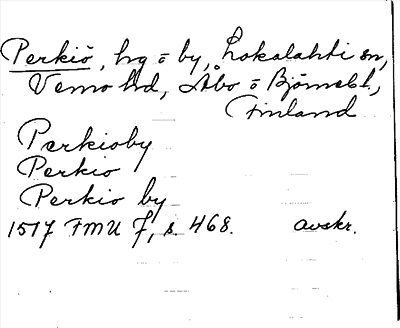 Perkiö, hg o by, Lokalahti sn,
Vemo hd, Åbo o Björneb l.,
Finland
Perkioby
Perkio
Perkio by
1517 FMU 7, s. 468. avskr.